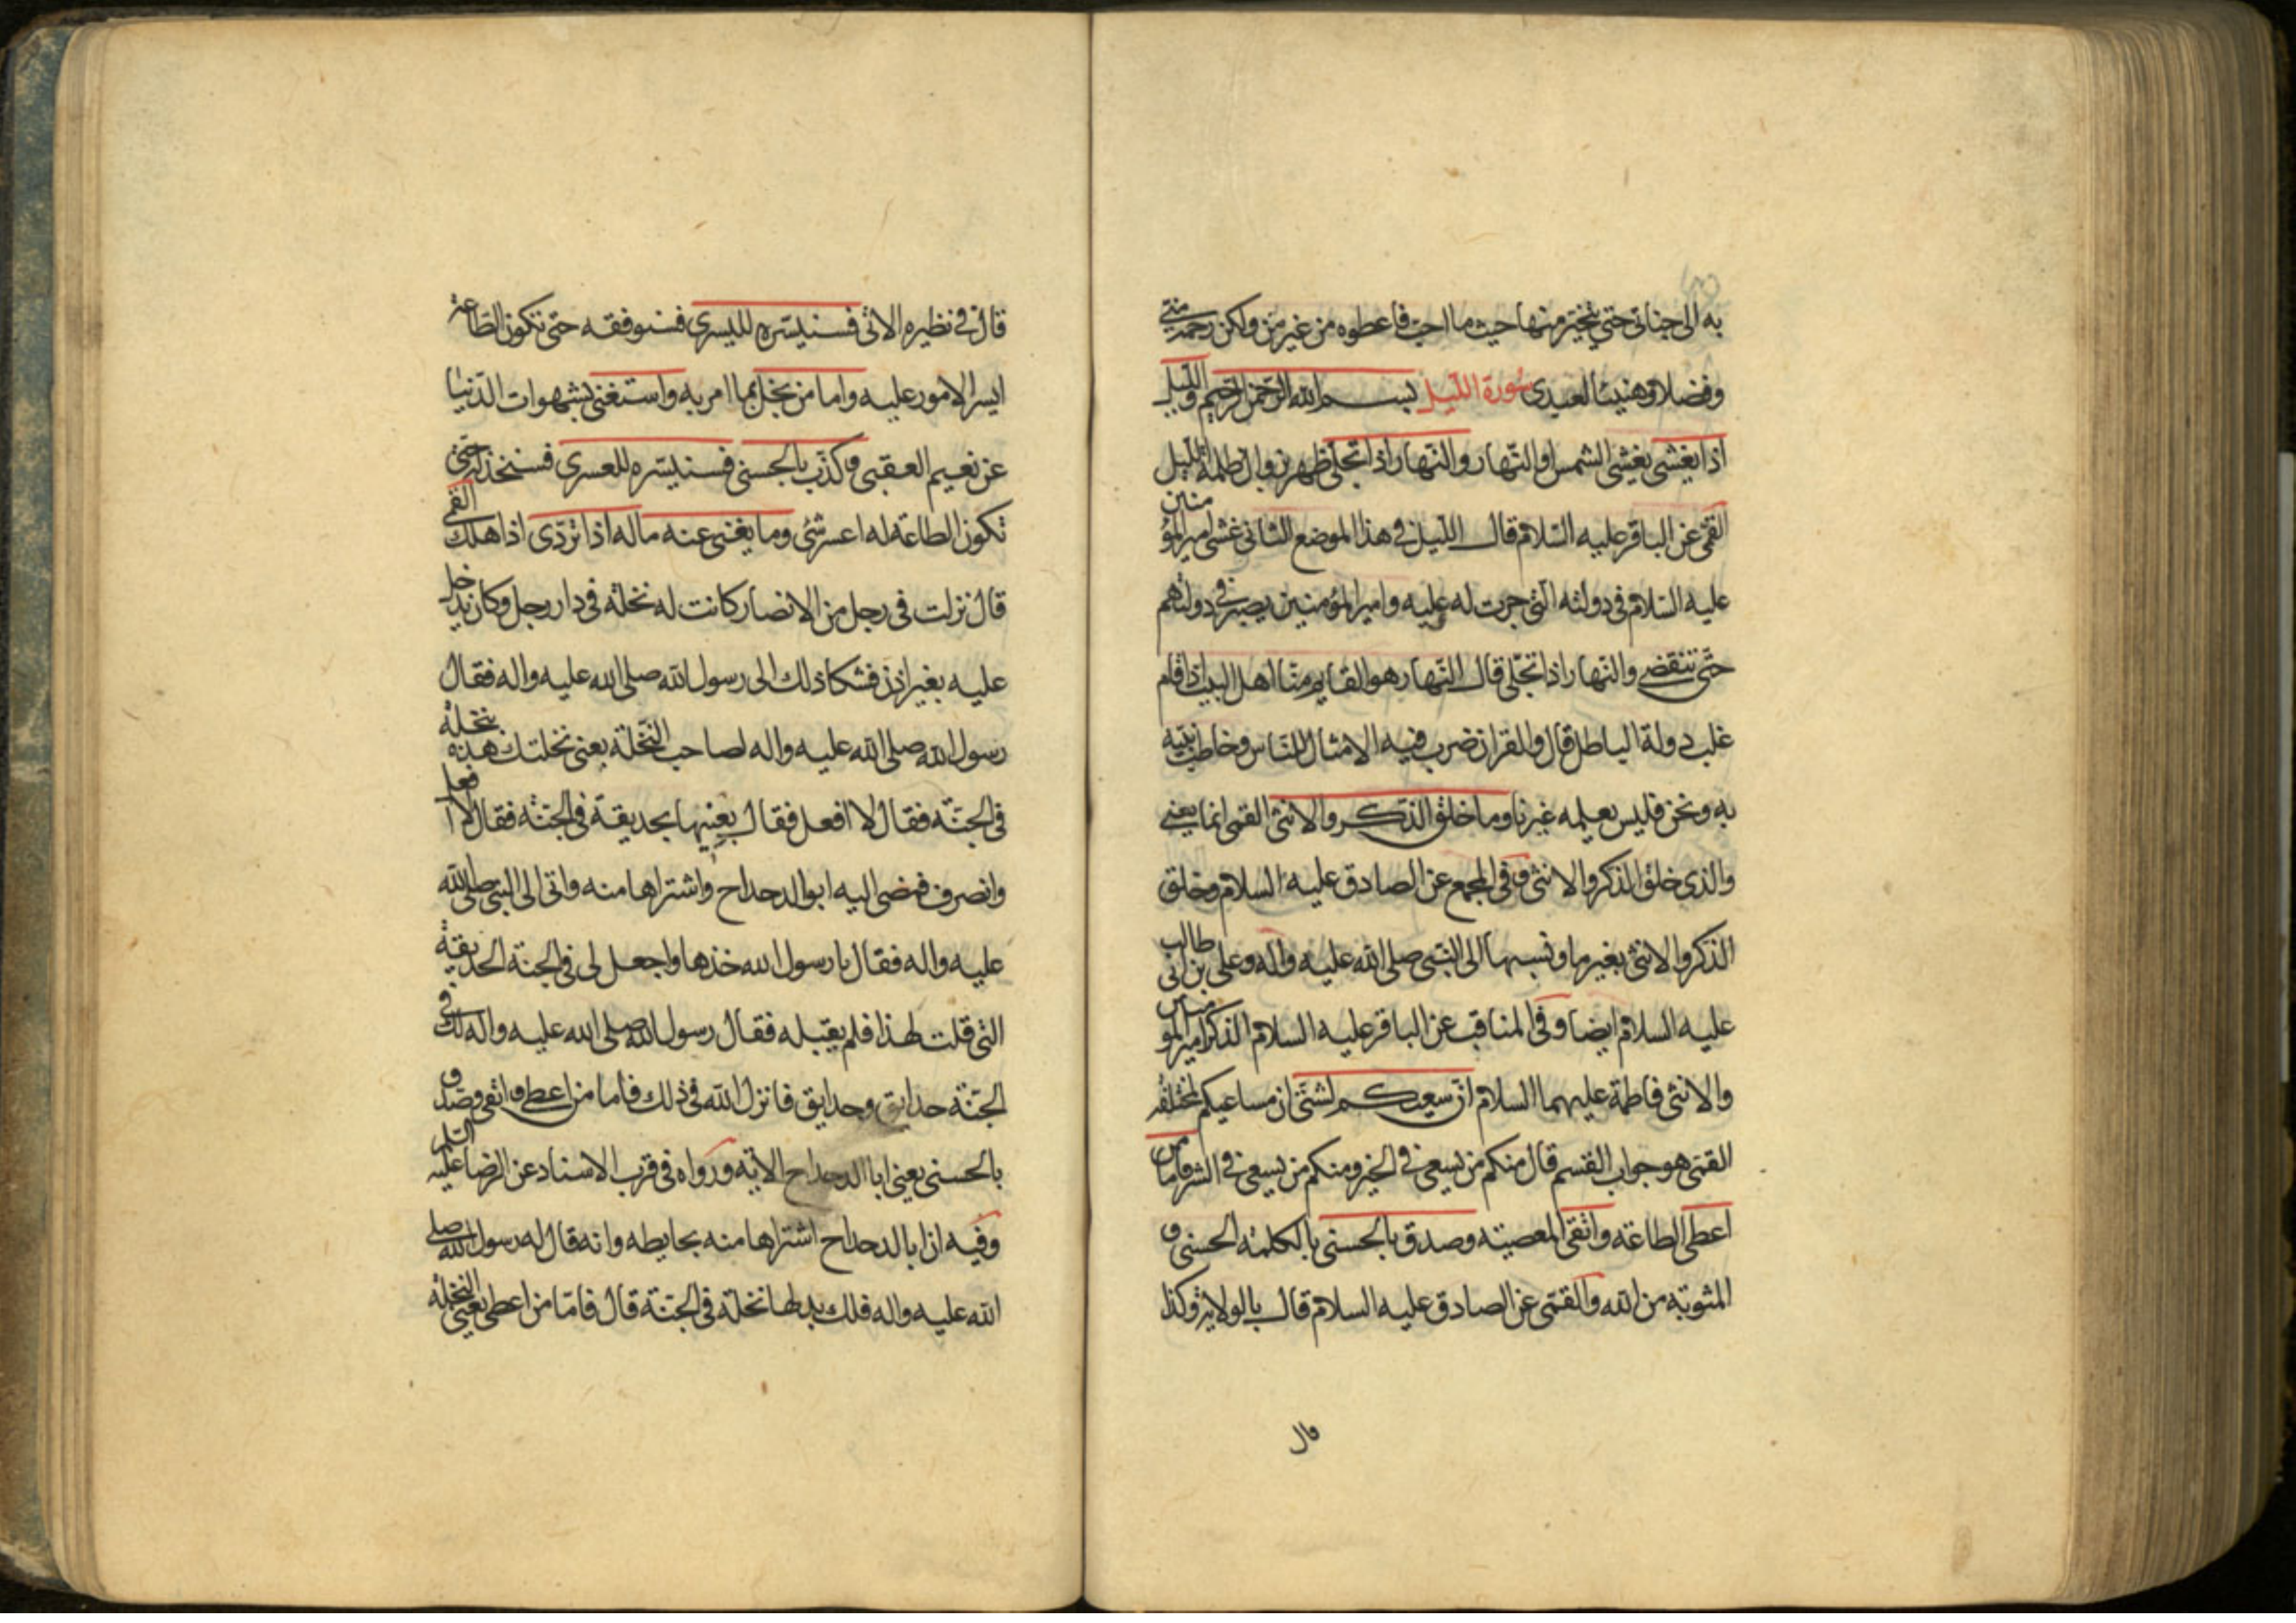 به الى جناتى حتى يتخير منها حيث ما احب فاعطوه من غير من ولكن رحمة منى
وفضلا وهنيئا لعبدى سورة الليل بسم الله الرحمن الرحيم والليل
اذا يغشى يغشى الشمس او النهار والنهار اذا تجلى ظهر بزوال ظلمة الليل
القمى عن الباقر عليه السلام قال الليل فى هذا الموضع الثانى غشى امير المؤمنين
عليه السلام فى دولته التى جرت له عليه وامير المؤمنين يصبر فى دولتهم
حتى تنقضى والنهار اذا تجلى قال النهار هو القايم منا اهل البيت اذا قام
غلب دولة الباطل قال والقران ضرب فيه الامثال للناس وخاطب نبيه
به ونحن فليس يعلمه غيرنا وما خلق الذكر والانثى القمى انما يعنى
والذى خلق الذكر والانثى وفى المجمع عن الصادق عليه السلام وخلق
الذكر والانثى بغير ما ونسبها الى النبى صلى الله عليه واله وعلى بن ابى طالب
عليه السلام ايضا وفى المناقب عن الباقر عليه السلام الذكر امير المؤمنين
والانثى فاطمة عليهما السلام ان سعيكم لشتى ان مساعيكم لمختلفة
القمى هو جواب القسم قال منكم من يسعى فى الخير ومنكم من يسعى فى الشر فاما من
اعطى الطاعة واتقى المعصية وصدق بالحسنى بالكلمة الحسنى و
المثوبة من الله والقمى عن الصادق عليه السلام قال بالولاية وكذا
قال
قال فى نظيره الاتى فسنيسره لليسرى فسنوفقه حتى تكون الطاعة
ايسر الامور عليه واما من بخل بما امر به واستغنى بشهوات الدنيا
عن نعيم العقبى وكذب بالحسنى فسنيسره للعسرى فسنخذله حتى
تكون الطاعة له اعسر شئ وما يغنى عنه ماله اذا تردى اذا هلك القمى
قال نزلت فى رجل من الانصار كانت له نخلة فى دار رجل وكان يدخل
عليه بغير اذن فشكا ذلك الى رسول الله صلى الله عليه واله فقال
رسول الله صلى الله عليه واله لصاحب النخلة بعنى نخلتك هذه بنخلة
فى الجنة فقال لا افعل فقال بعنيها بحديقة فى الجنة فقال لا افعل
وانصرف فمضى اليه ابو الدحداح واشتراها منه واتى الى النبى صلى الله
عليه واله فقال يا رسول الله خذها واجعل لى فى الجنة الحديقة
التى قلت لهذا فلم يقبله فقال رسول الله صلى الله عليه واله لك فى
الجنة حدايق وحدايق فانزل الله فى ذلك فاما من اعطى واتقى وصدق
بالحسنى يعنى ابا الدحداح الاية ورواه فى قرب الاسناد عن الرضا عليه السلم
وفيه ان ابا لدحداح اشتراها منه بحايطه وانه قال له رسول الله صلى
الله عليه واله فلك بدلها نخلة فى الجنة قال فاما من اعطى يعنى النخلة